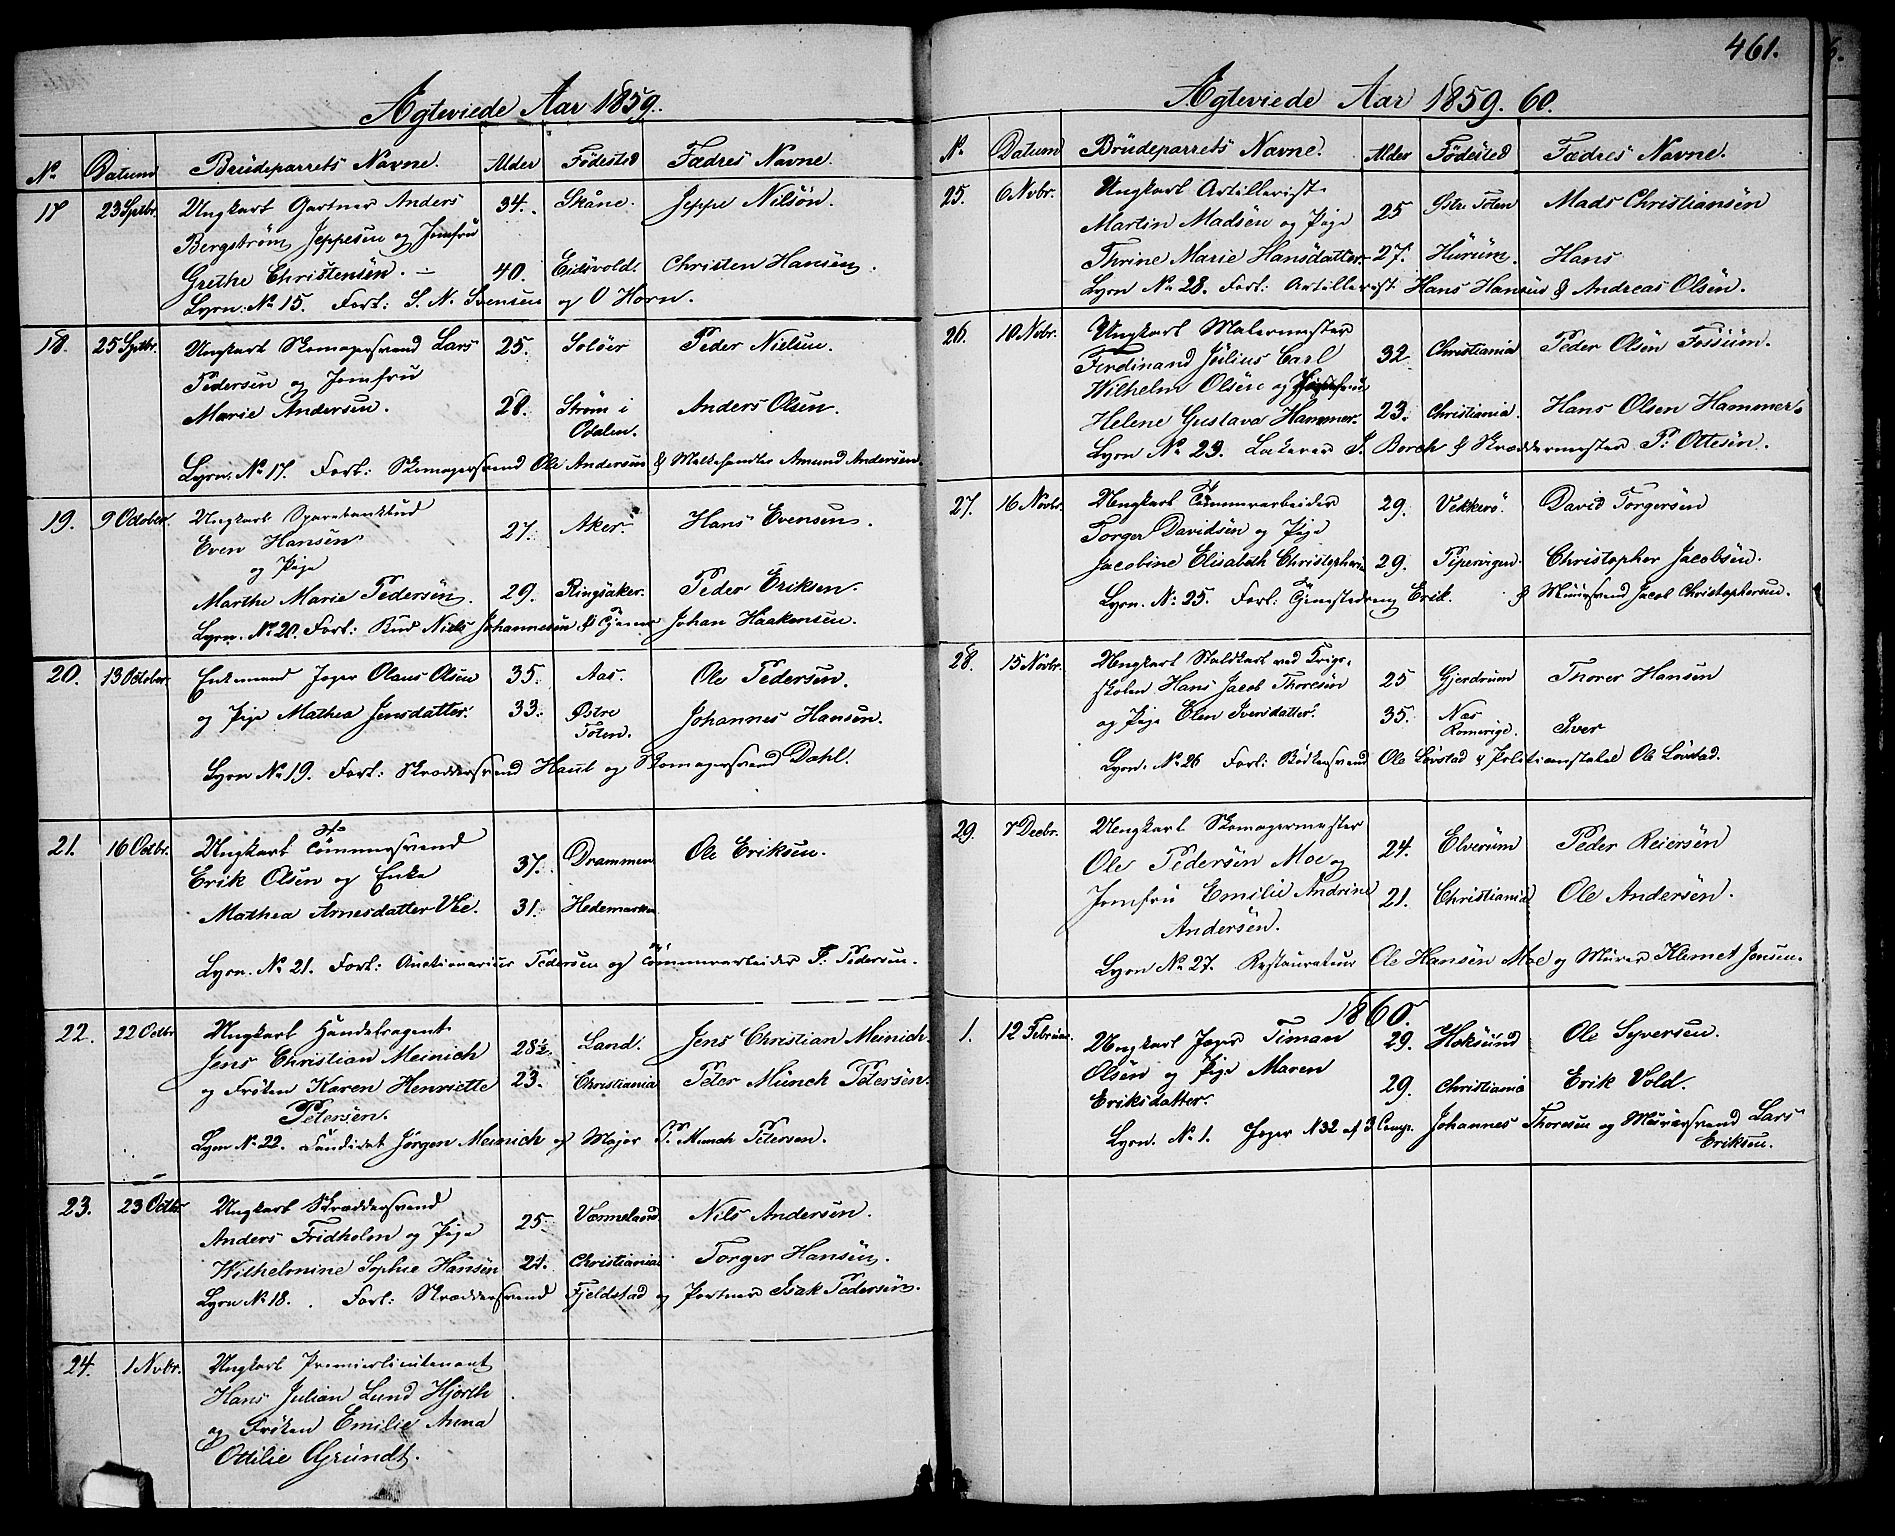 Ægteviede Aar 1859.
No Datum Brüdeparrets Navne. Alder Fødested Fædres Navne.
17 23 Sptbr. Ungkarl Gartner Anders 34. Skåne. Jeppe Nilsön.
Bergström Jeppesen og Jomfrü
Grethe Christensén. — 40. Eidsvold. Christen Hansen.
Lysn: No 15. Forl: S. N. Svensen og O Horn.
18. 25 Sptbr. Ungkarl Skomagersvend Lars 25. Solöer Peder Nielsen.
Pedersen og Jomfru
Marie Andersen. 28. Ström i Anders Olsen.
Odalen.
Lysn: No 17. Forl: Skomagersvend Ole Andersen & Melkehandler Amund Andersen.
19. 9 October. Ungkarl Sparebankbud 27. Aker. Hans Evensen.
Even Hansen
og Pige
Marthe Marie Pedersen. 29. Ringsaker. Peder Eriksen.
Lysn. No 20. Forl: Bud Niels Johannesen & Tjener Johan Haakensen.
20. 13 October. Enkemand Jæger Olaus Olsen 35. Aas. Ole Pedersen.
og Pige Mathea Jensdatter. 33. Østre Johannes Hansen.
Toten.
Lysn No 19. Forl: Skræddersvend Haul og Skomagersvend Dahl.
21. 16 Octbr. Ungkarl Tömmersvend 37. Drammen Ole Eriksen.
Erik Olsen og Enke
Mathea Arnesdatter 31. Hedemarken
Lysn. No 21. Forl: Auctionarius Pedersen og Tömmerarbeider P. Pedersen.
22. 22 Octbr Ungkarl Handelsagent
Jens Christian Meinich 28½. Land. Jens Christian Meinich.
og Fröken Karen Henriette 23. Christiania Peter Münch Petersen.
Petersen.
Lysn No 22. Candidat Jörgen Meinich og Major P. Munch Petersen.
23. 23 Octbr Ungkarl Skræddersvend
Anders Fridholen og Pige 25. Værmeland Nils Andersen.
Wilhelmine Sophie Hansen 24. Christiania Torger Hansen.
Lysn No 18. Forl: Skræddersvend Fjeldstad og Portner Isak Pedersen.
24. 1 Nvbr. Ungkarl Premierlieutenant
Hans Julian Lund Hjorth
og Fröken Emilie Anna
Ottilie Gründt.
461.
Ægteviede Aar 1859. 60.
No Datum Brüdeparrets Navne. Alder Födested Fædres Navne.
25. 6 Nvbr. Ungkarl Artillerist
Martin Madsen og Pige 25 Östre Toten Mads Christiansén
Thrine Marie Hansdatter 27. Hürum. Hans
Lysn No 28. Forl: Artillerist Hans Hansen & Andreas Olsen.
26. 10 Nvbr. Ungkarl Malermester
Ferdinand Jülius Carl 32. Christiania Peder Olsen Fossum.
Wilhelm Olsen og
Helene Gustava Hammer. 23. Christiania. Hans Olsen Hammer.
Lysn No 29. Lakerer J. Borch & Skræddermester P. Ottesen.
27. 16 Novbr. Ungkarl Tömmerarbeider 29. Vekkerö. David Torgersén
Torger Davidsen og Pige
Jacobine Elisabeth Christophersen 29. Pipervigen Christopher Jacobsén.
Lysn. No 25. Forl: Erik. & Muursvend Jacob Christophersen.
28. 15 Novbr. Ungkarl Staldkarl ved Krigs-
skolen Hans Jacob Thoresen 25 Gjerdrum Thorer Hansen
og Pige Elen Iversdatter. 35. Næs Iver
Romerige.
Lysn. No 26 Forl: Bödkersvend Ole Lövstad & Politiconstabel Ole Lövstad.
29. 7 Decbr. Ungkarl Skomagermester
Ole Pedersen Moe og 24. Elverüm Peder Reiersen
Jomfru Emilie Andrine 21. Christiania Ole Andersen.
Andersén.
Lysn No 27. Restauratør Ole Hansen Moe og Murer Klemet Jensen.
1860.
1. 12 Februar. Ungkarl Jæger Timan 29. Hoksund Ole Syversen.
Olsén og Pige Maren 29. Christiania Erik Vold.
Eriksdatter.
Lysn. No 1. Jæger N 32 af 3. Comp. Johannes Thoresen og Muursvend Lars
Eriksen.